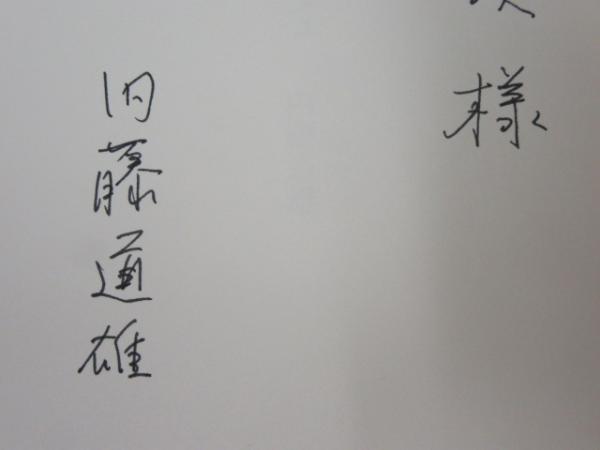 様
内藤道雄